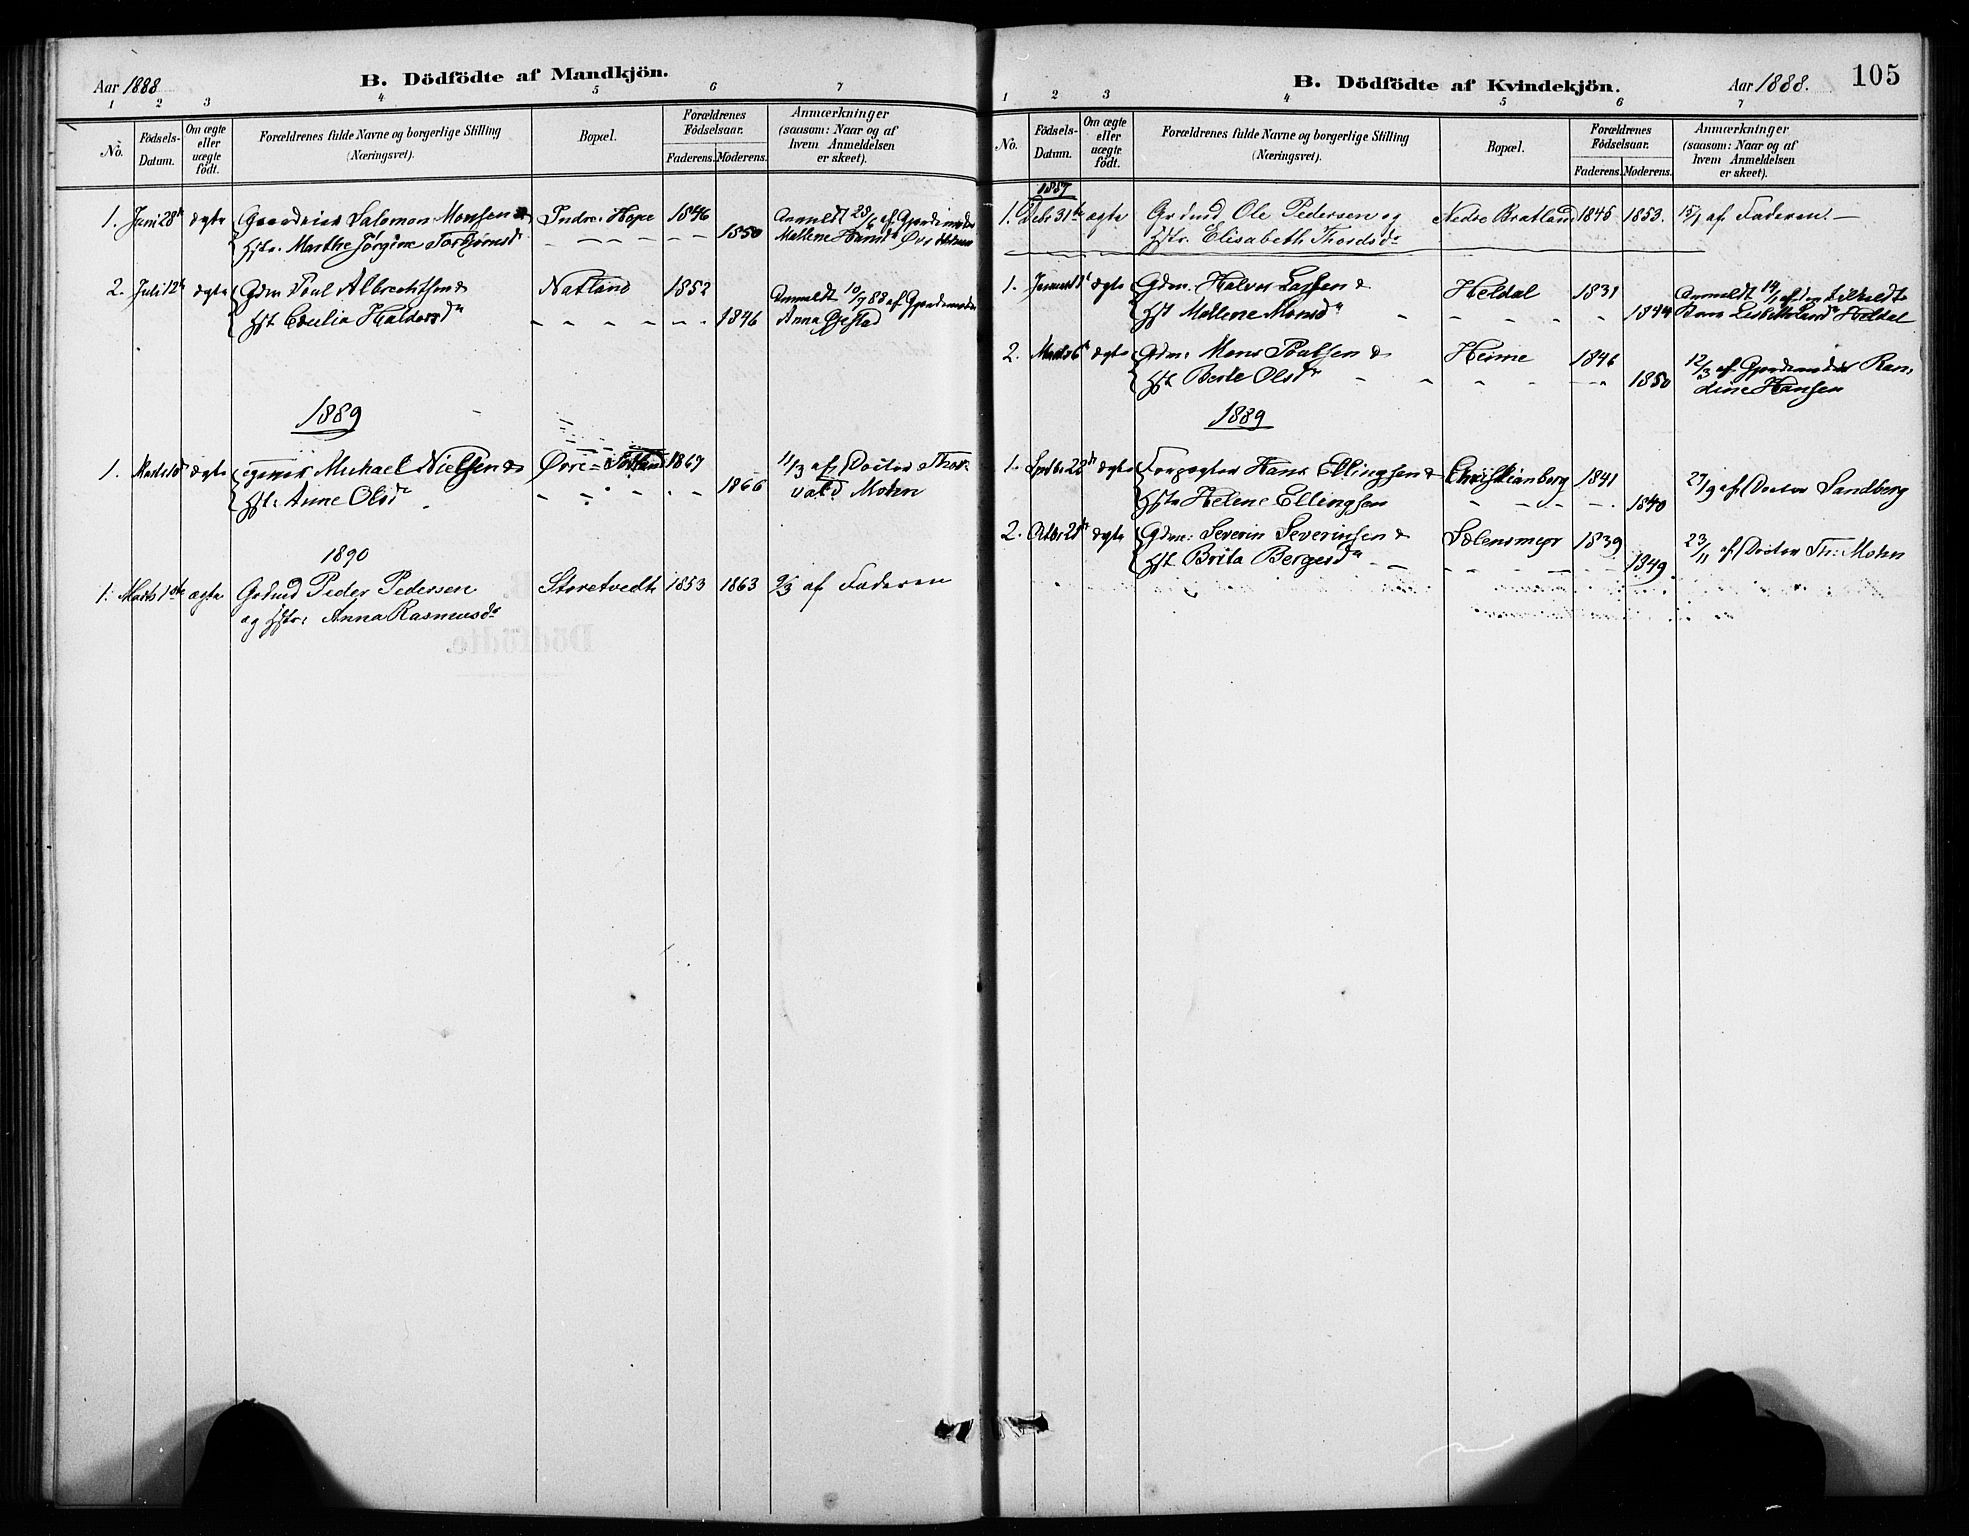 Aar 1888
B. Dödfödte af Mandkjön.
1 2 3 4 5 6 7
No. Födsels-Datum. Om ægte eller uægte födt. Forældrenes fulde Navne og borgerlige Stilling (Næringsvei). Bopæl. Forældrenes Födselsaar. Faderens. Moderens. Anmærkninger (saasom: Naar og af hvem Anmeldelsen er skeet).
1. Juni 28de ægte Salomon Monsen & Indre Hope 1846 Anmeldt 29/6 af Gjordemoder
Hstr. Marthe Jørgine 1850 Mallene
2. Juli 12te ægte Gdm. Poul Albrechtsen & Natland 1852 Anmeldt 10/7 88 af Gjordemoder
Hst Cecilia Haldorsdr 1846 Anna Gjestad
1889
1. Marts ægte Michael Nielsen & Øvre 1867 11/3 af Doctor Thor-
Hst. Anne Olsdr 1866 vald Mohn
1890
1. Marts 1ste ægte Grdmd Peder Pedersen Storetvedt 1853 1863 af Faderen
og Hstr: Anna Rasmusdr
B. Dödfödte af Kvindekjön.
Aar 1888.
105
1 2 3 4 5 6 7
No. Födsels-Datum. Om ægte eller uægte födt. Forældrenes fulde Navne og borgerlige Stilling (Næringsvei). Bopæl. Forældrenes Födselsaar. Faderens. Moderens. Anmærkninger (saasom: Naar og af hvem Anmeldelsen er skeet).
1887
1. Debr 31te ægte Grdmd Ole Pedersen og Nedre Bratland 1845 1853. af Faderen. —
Hstr. Elisabeth Thordsdr
1. ægte Gdm. Halvor Larsen & Heldal 1831 Anmeldt 14/1 af
Hst Mallene Monsdr 1844 Heldal
2. Marts 6te ægte Gdm: Mons Poulsen & Heime 1846 12/3 af Gjordemoder Ran-
Hst Berte Olsdr 1850 dine Hansen
1889
1. Septbr 22de ægte Forpagter Hans Ellingsen & Christianberg 1841 27/9 af Doctor Sandberg
Hstr Helene Ellingsen 1840
2. Octbr ægte Gdm: Severin Severinsen & Sælensmyr 1839 23/11 af Doctor Th: Mohn
Hst Brita Bergesdr 1849.